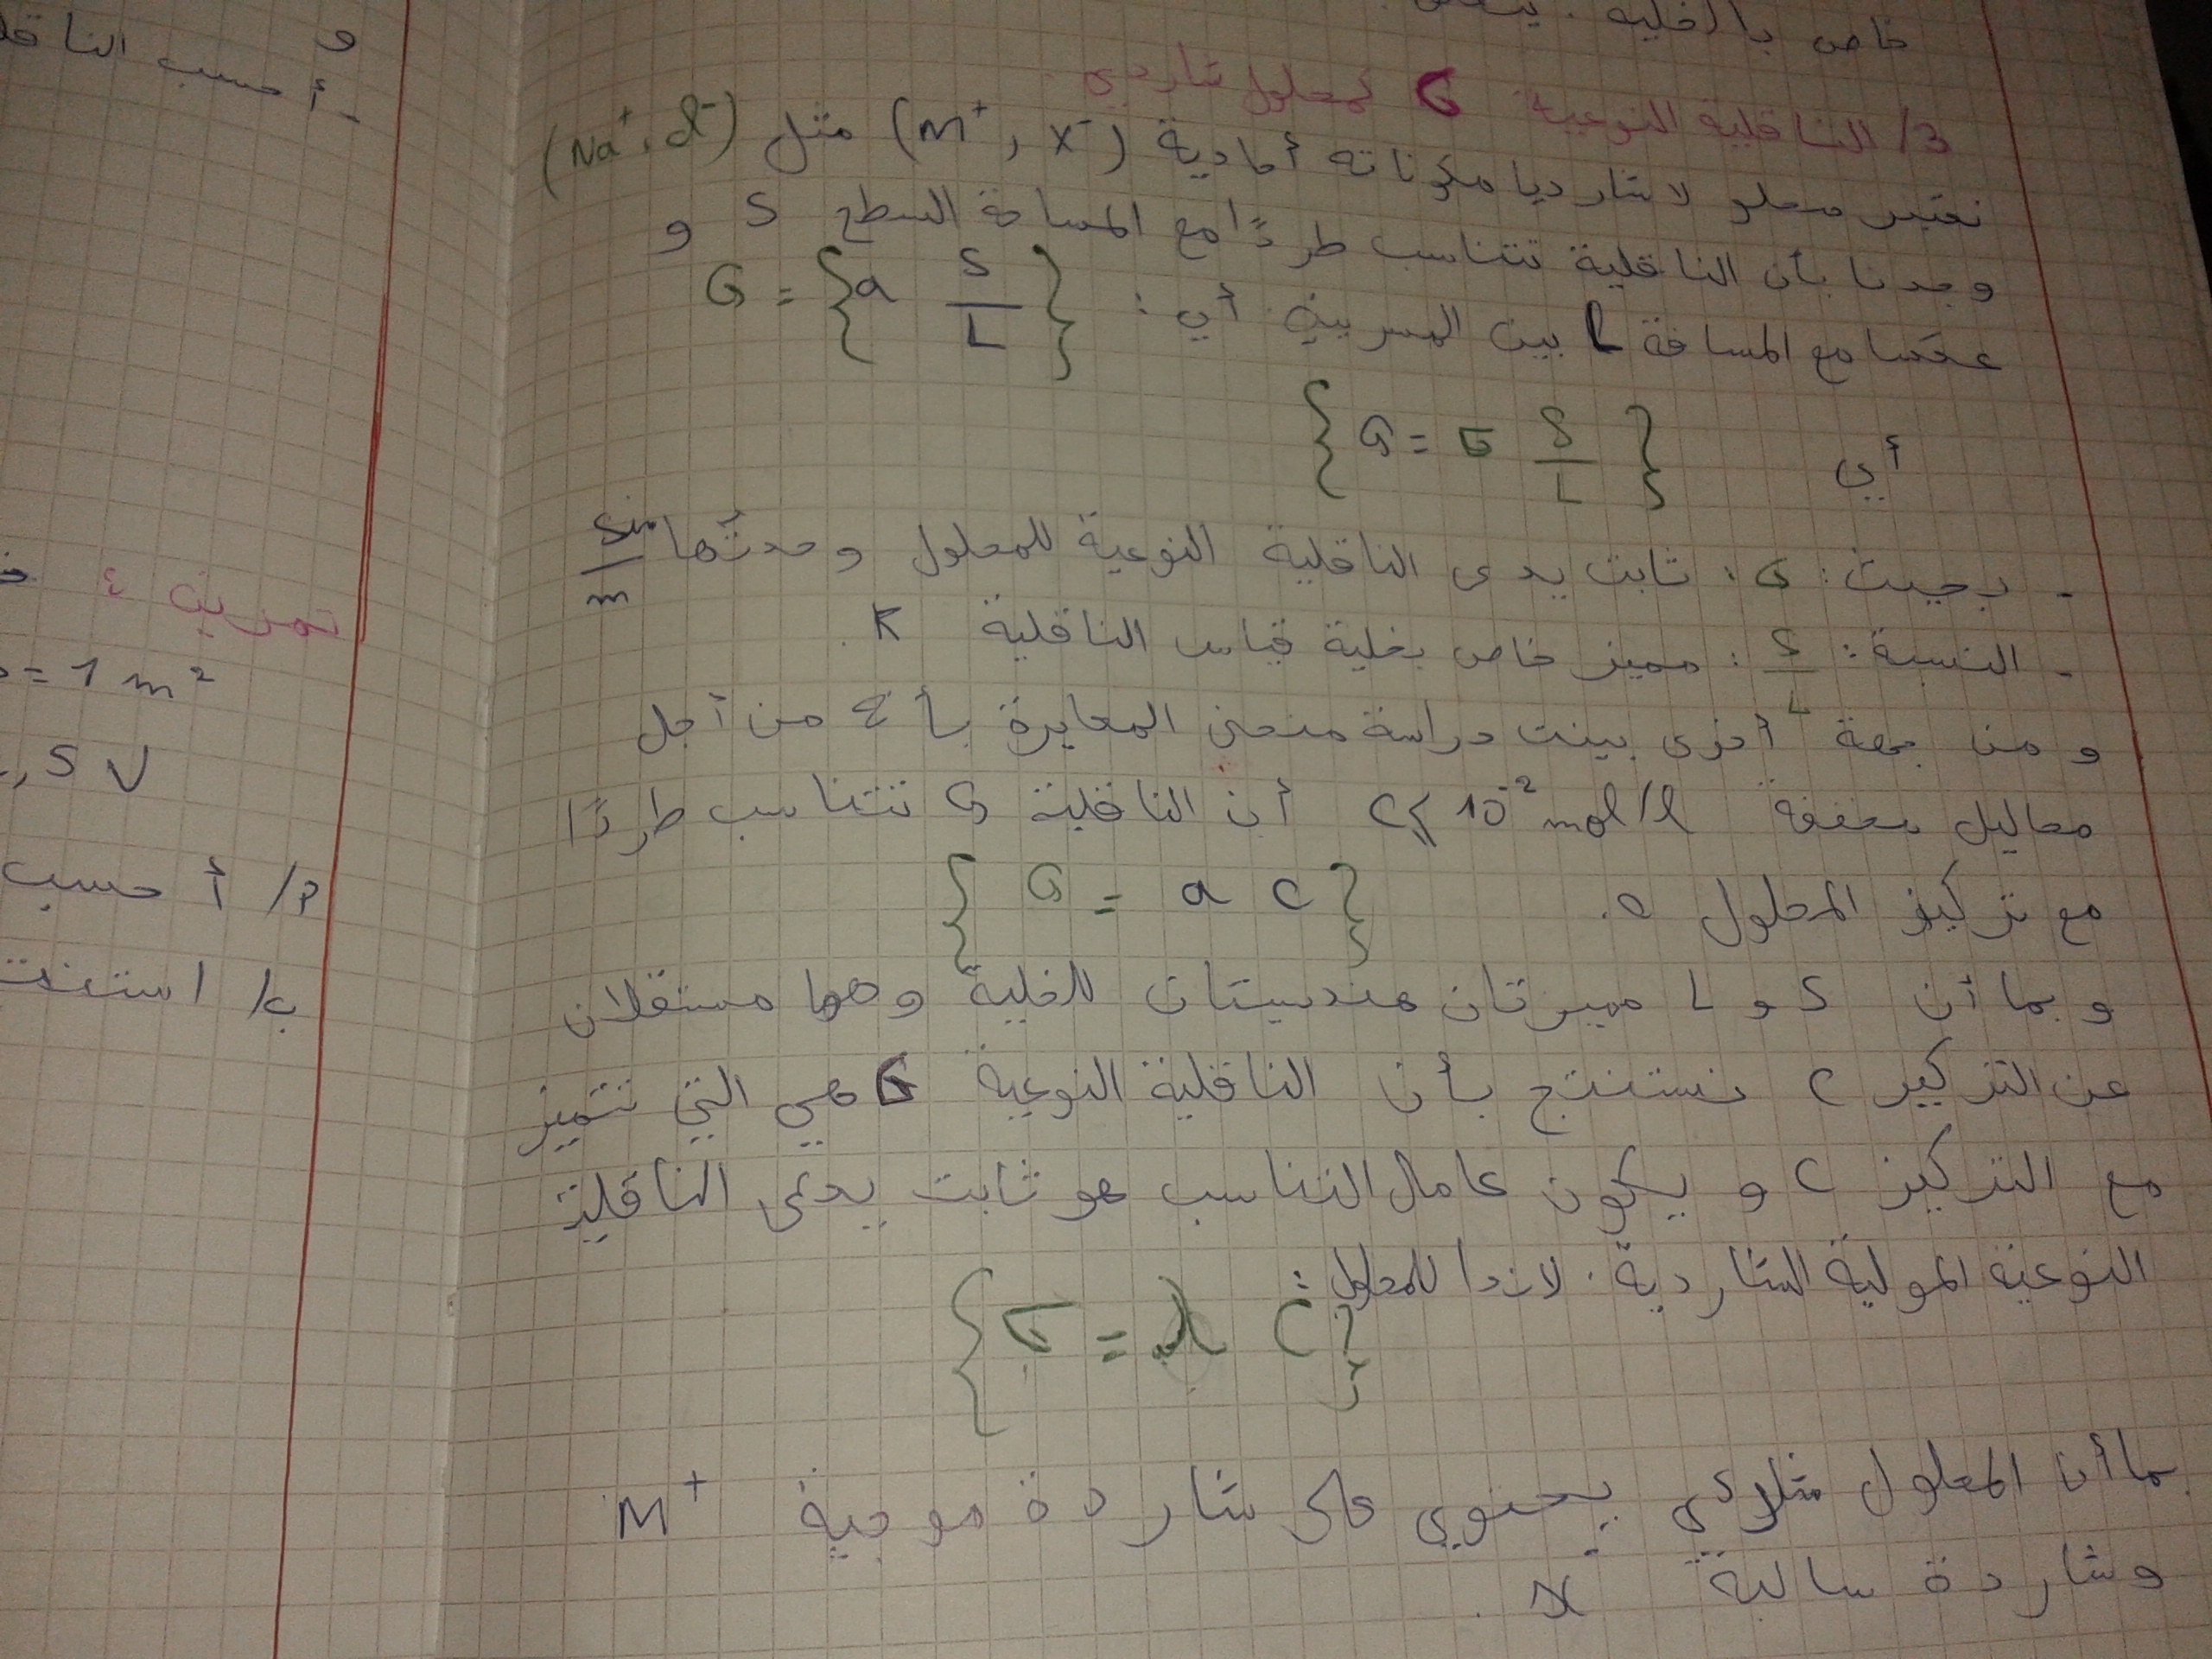 خاص بالخلية.
3/ الناقلية النوعية G لمحلول شاردي.
نعتبر محلو لا شارديا مكوناته أحادية (M⁺, X⁻) مثل (Na⁺, Cl⁻)
وجدنا بأن الناقلية تتناسب طردًا مع المساحة السطح S و
عكسا مع المسافة L بين المسريين. أي: G = {a S/L}
أي {G = σ S/L}
- بحيث: σ: ثابت يدعى الناقلية النوعية للمحلول وحدتها Sim/m
- النسبة: S/L: مميز خاص بخلية قياس الناقلية K.
و من جهة أخرى بينت دراسة منحنى المعايرة بأنه من أجل
محاليل مخففة C ⩽ 10⁻² mol/l أن الناقلية G تتناسب طردًا
مع تركيز المحلول c. {G = a c}
وبما أن S و L ميزتان هندسيتان للخلية وهما مستقلان
عن التركيز C نستنتج بأن الناقلية النوعية σ هي التي تتميز
مع التركيز C و يكون عامل التناسب هو ثابت يدعى الناقلية
النوعية المولية الشاردية. لاندا للمحلول:
{σ = λ C}
بما أن المحلول يحتوي على شاردة موجبة M⁺
وشاردة سالبة X⁻.
و
- أحسب
تمرين 4
= 1 m²
,5 V
أ حسب
ب/